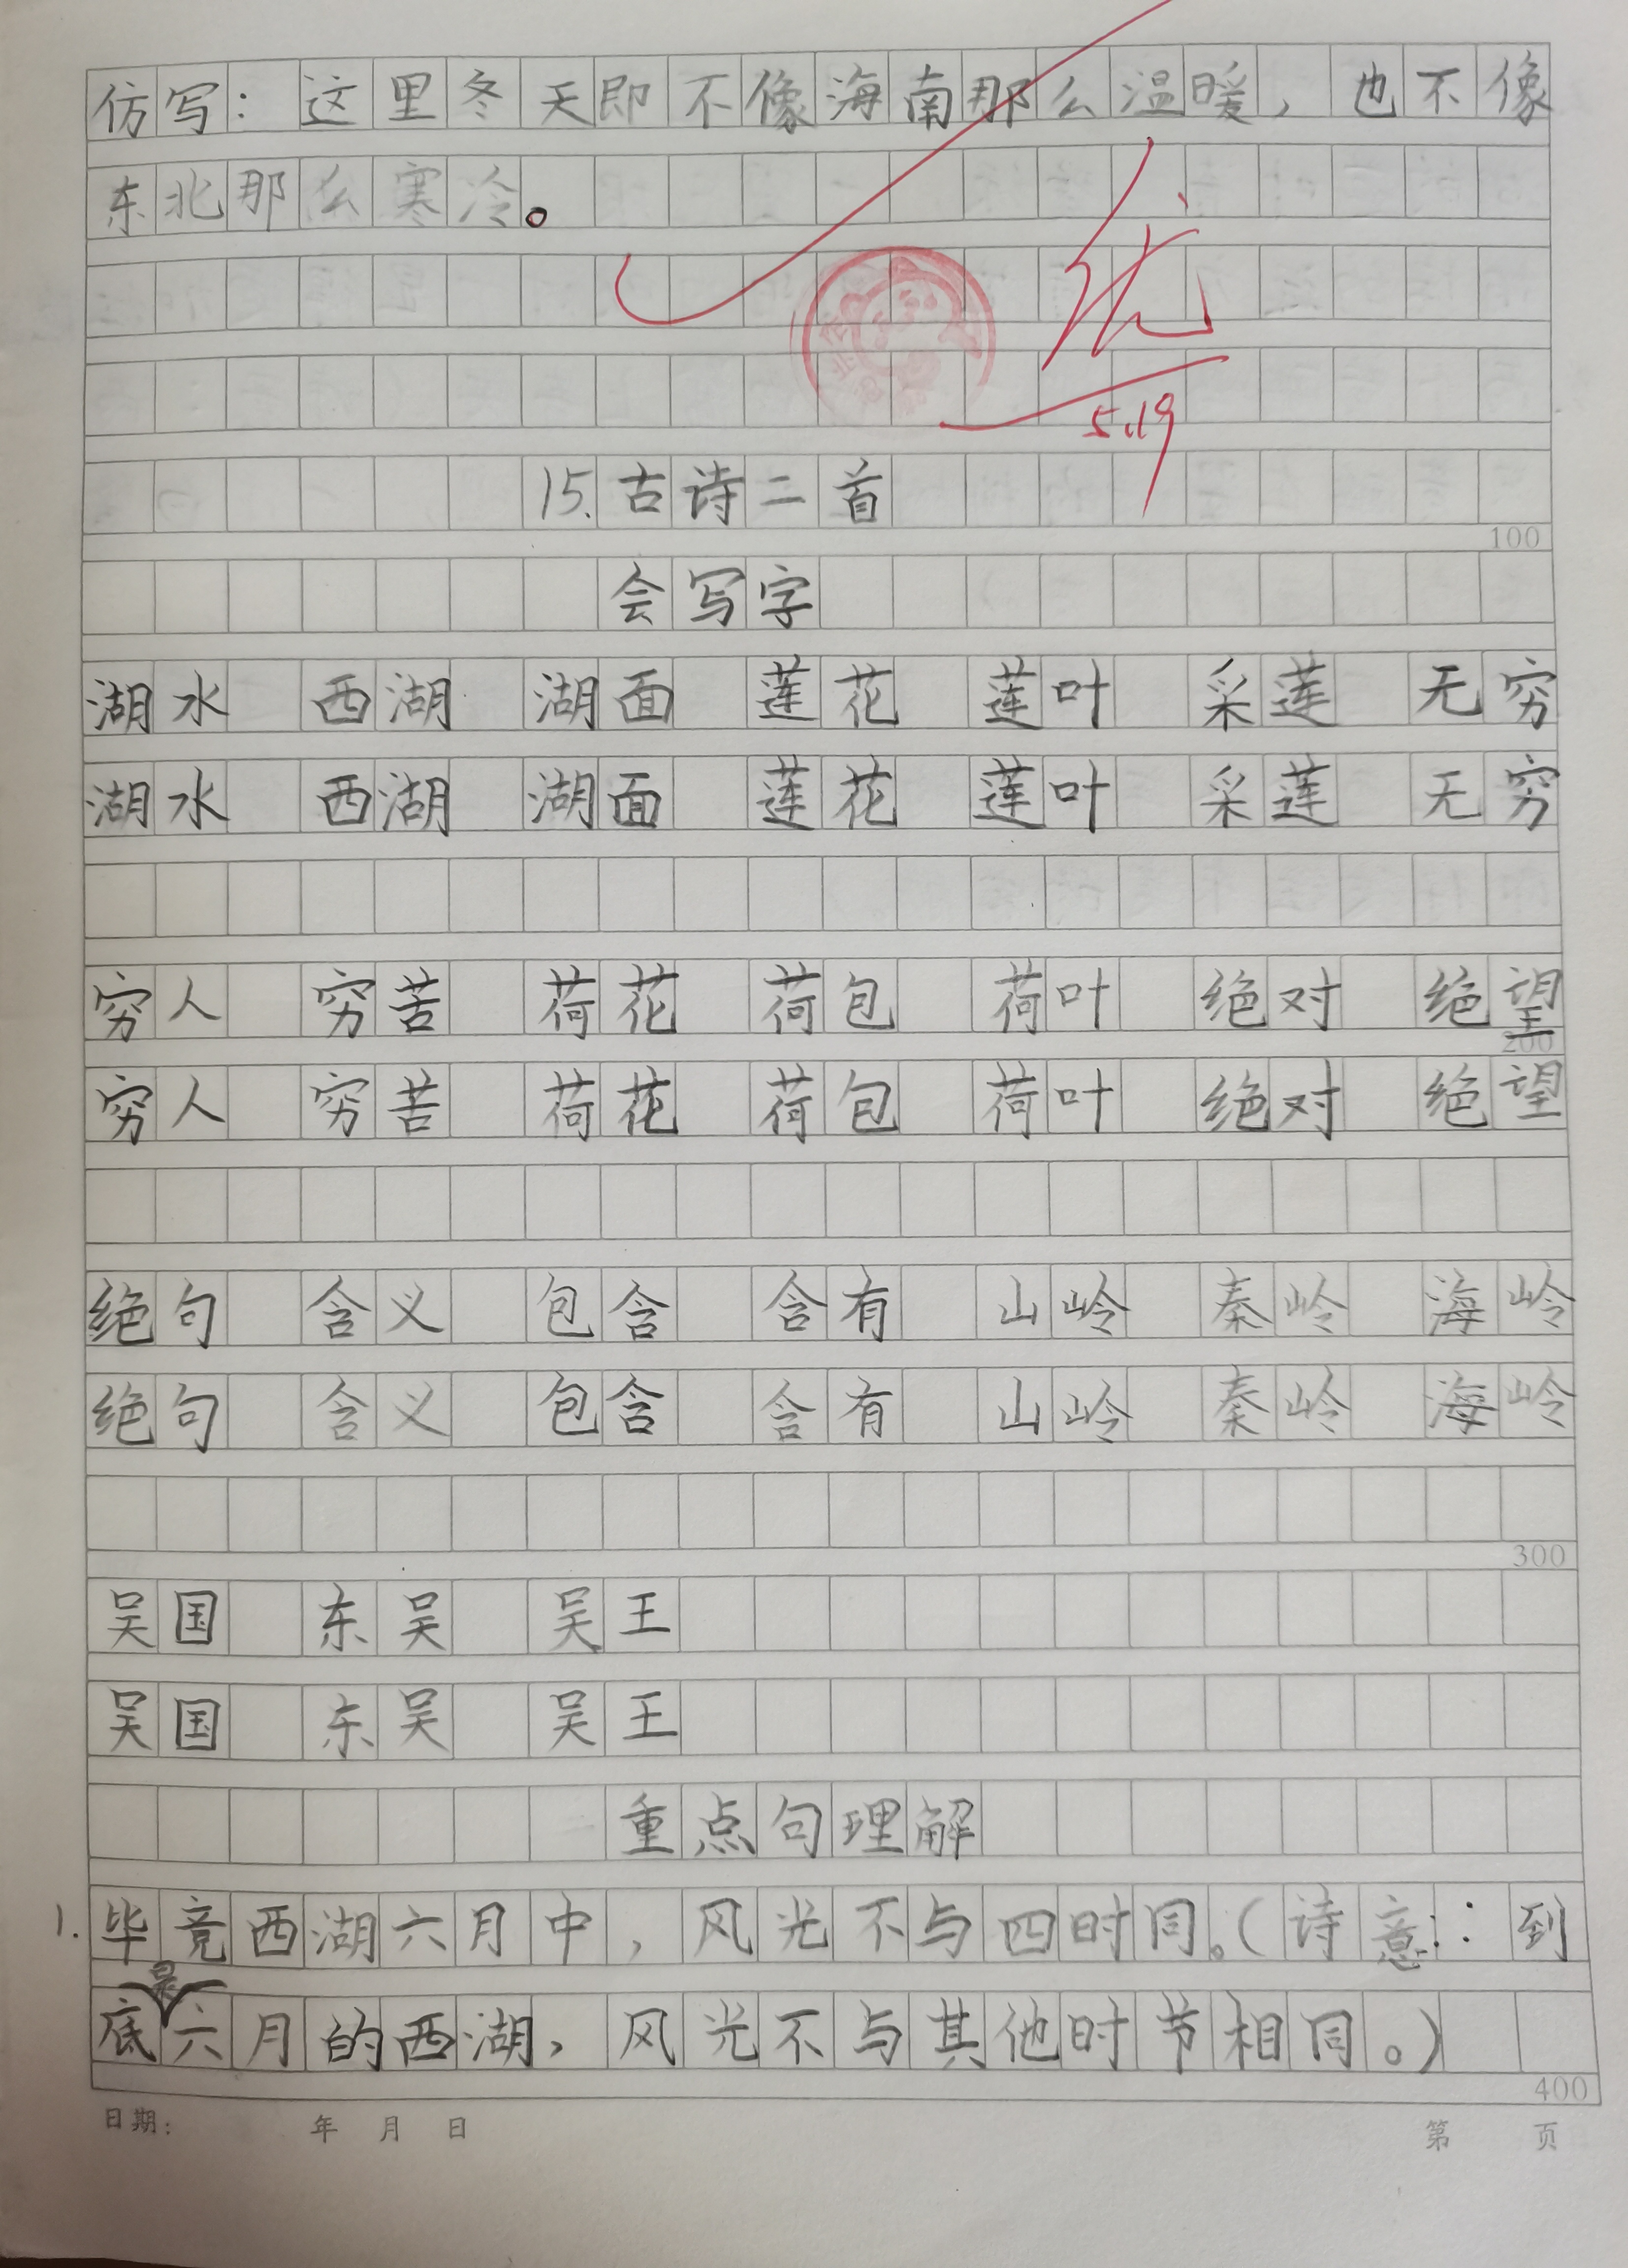 仿写：这里冬天即不像海南那么温暖，也不像
东北那么寒冷。
优
5.19
15.古诗二首
100
会写字
湖水 西湖 湖面 莲花 莲叶 采莲 无穷
湖水 西湖 湖面 莲花 莲叶 采莲 无穷
穷人 穷苦 荷花 荷包 荷叶 绝对 绝望
200
穷人 穷苦 荷花 荷包 荷叶 绝对 绝望
绝句 含义 包含 含有 山岭 秦岭 海岭
绝句 含义 包含 含有 山岭 秦岭 海岭
300
吴国 东吴 吴王
吴国 东吴 吴王
重点句理解
1.毕竟西湖六月中，风光不与四时同。（诗意：到
底是六月的西湖，风光不与其他时节相同。）
400
日期： 年 月 日 第 页